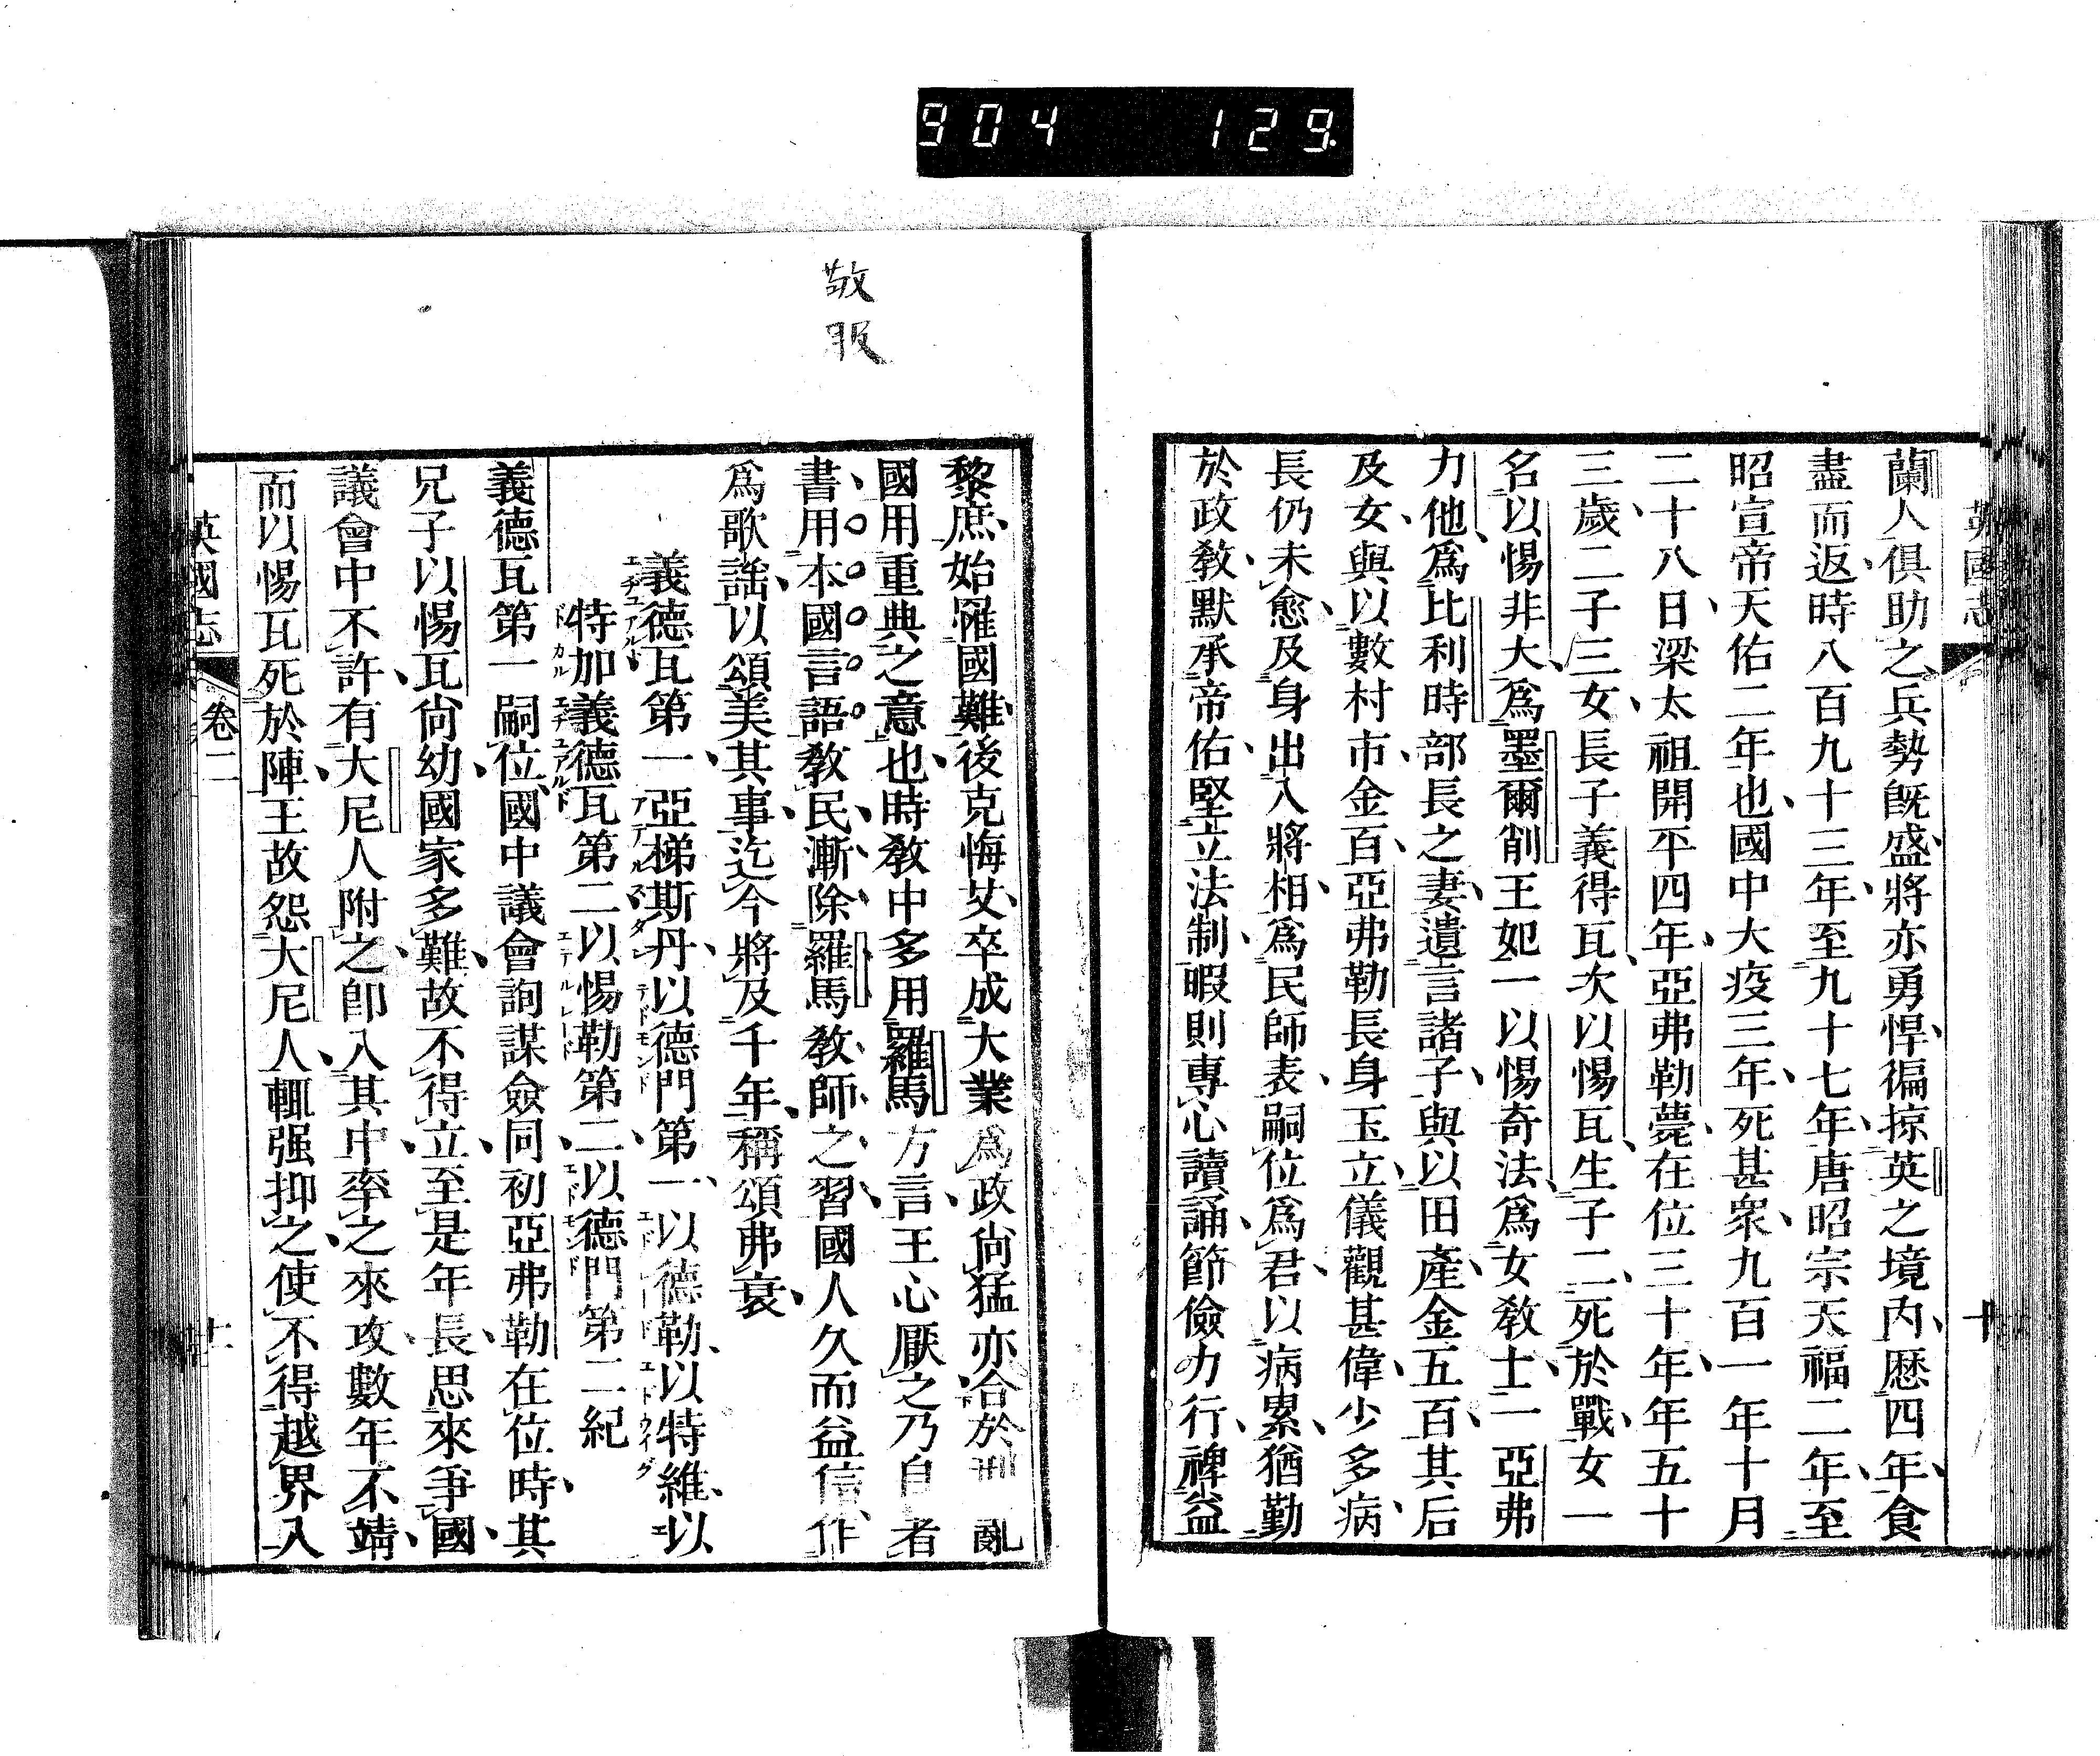 904 129.
英國志
十
蘭人俱助之兵勢既盛將亦勇悍徧掠英之境內歷四年食
盡而返時八百九十三年至九十七年唐昭宗天福二年至
昭宣帝天佑二年也國中大疫三年死甚衆九百一年十月
二十八日梁太祖開平四年亞弗勒薨在位三十年年五十
三歲二子三女長子義得瓦次以惕瓦生子二死於戰女一
名以惕非大爲墨爾削王妃一以惕奇法爲女敎士一亞弗
力他爲比利時部長之妻遺言諸子與以田產金五百其后
及女與以數村市金百亞弗勒長身玉立儀觀甚偉少多病
長仍未愈及身出入將相爲民師表嗣位爲君以病累猶勤
於政敎默承帝佑堅立法制暇則專心讀誦節儉力行裨益
敬服
黎庶始罹國難後克悔艾卒成大業爲政尙猛亦合於 亂
國用重典之意也時敎中多用羅馬方言王心厭之乃自者
書用本國言語敎民漸除羅馬敎師之習國人久而益信作
爲歌謠以頌美其事迄今將及千年稱頌弗衰
義德瓦第一亞梯斯丹以德門第一以德勒以特維以
特加義德瓦第二以惕勒第二以德門第二紀
義德瓦第一嗣位國中議會詢謀僉同初亞弗勒在位時其
兄子以惕瓦尙幼國家多難故不得立至是年長思來爭國
議會中不許有大尼人附之卽入其中率之來攻數年不靖
而以惕瓦死於陣王故怨大尼人輒强抑之使不得越界入
英國志
卷二
十一